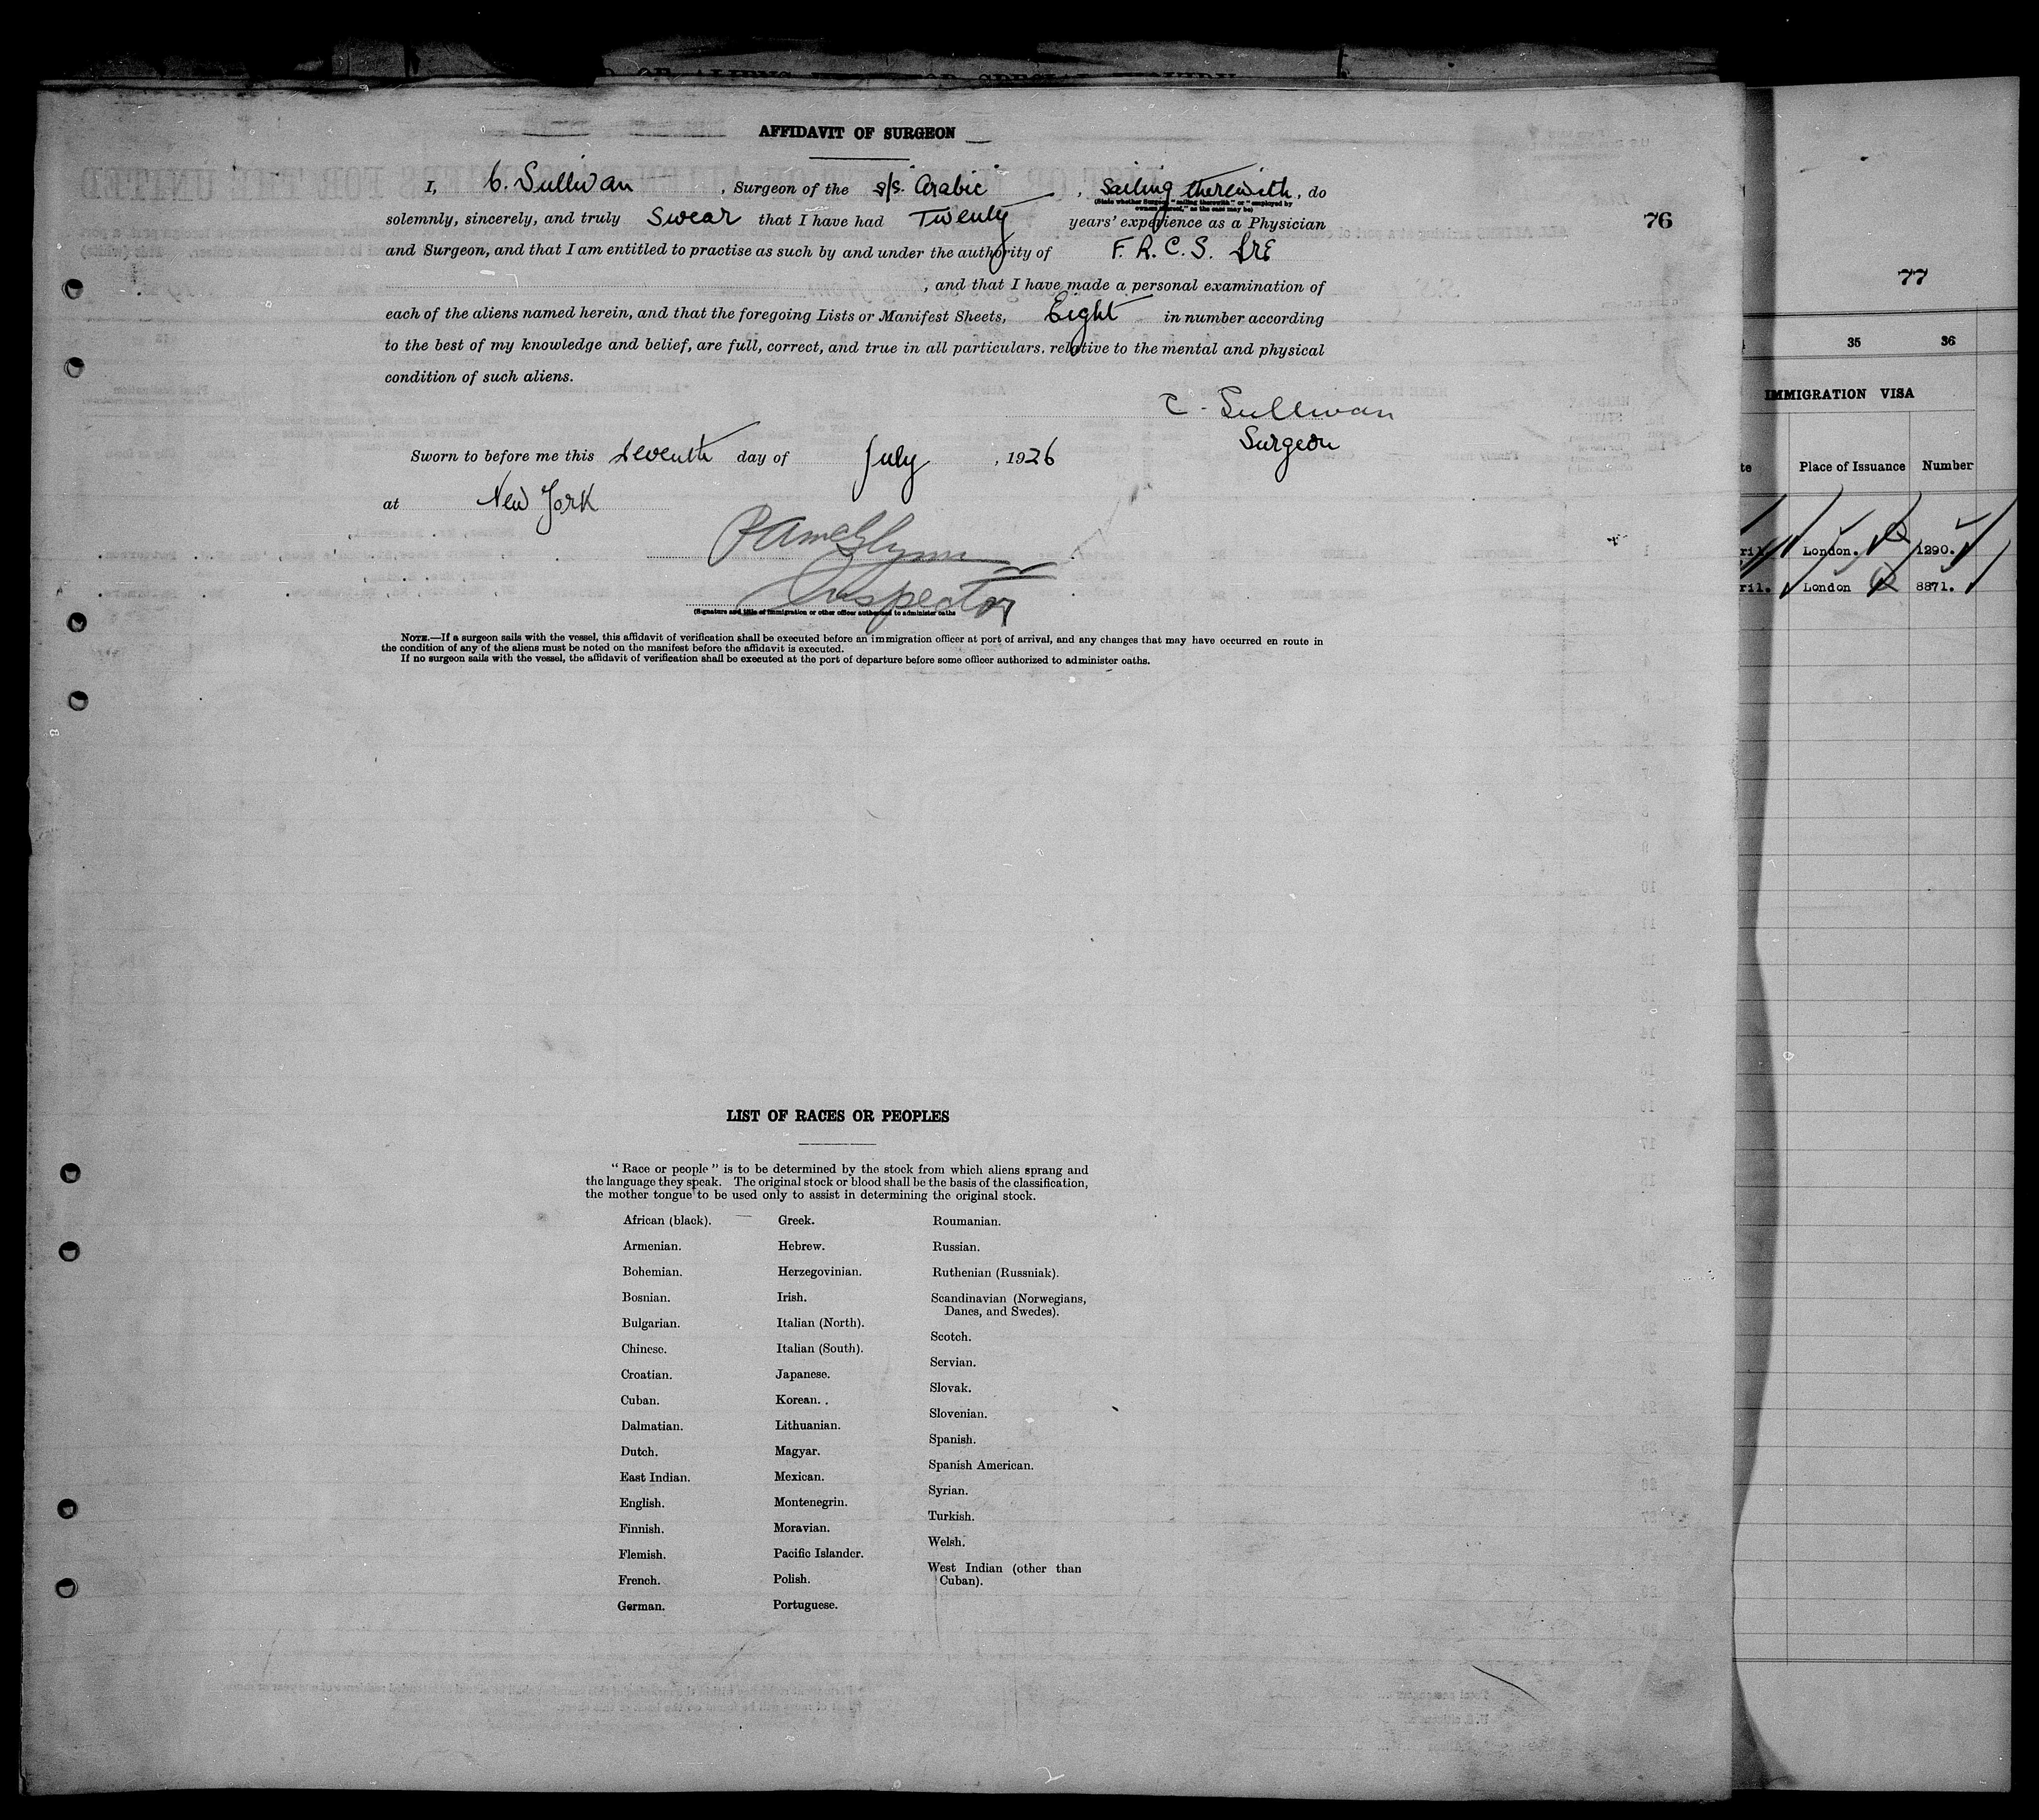 AFFIDAVIT OF SURGEON
I, C. Sullivan , Surgeon of the s/s. Arabic , Sailing therewith, do
(State whether Surgeon "sailing therewith" or "employed by
owners thereof," as the case may be)
solemnly, sincerely, and truly Swear that I have had Twenty years' experience as a Physician
and Surgeon, and that I am entitled to practise as such by and under the authority of F. R. C. S. IRE
, and that I have made a personal examination of
each of the aliens named herein, and that the foregoing Lists or Manifest Sheets, Eight in number according
to the best of my knowledge and belief, are full, correct, and true in all particulars, relative to the mental and physical
condition of such aliens.
C. Sullivan
Surgeon
Sworn to before me this seventh day of July , 1926
at New York
Inspector
(Signature and title of immigration or other officer authorised to administer oaths
NOTE.—If a surgeon sails with the vessel, this affidavit of verification shall be executed before an immigration officer at port of arrival, and any changes that may have occurred en route in
the condition of any of the aliens must be noted on the manifest before the affidavit is executed.
If no surgeon sails with the vessel, the affidavit of verification shall be executed at the port of departure before some officer authorized to administer oaths.
76
LIST OF RACES OR PEOPLES
"Race or people" is to be determined by the stock from which aliens sprang and
the language they speak. The original stock or blood shall be the basis of the classification,
the mother tongue to be used only to assist in determining the original stock.
African (black).
Armenian.
Bohemian.
Bosnian.
Bulgarian.
Chinese.
Croatian.
Cuban.
Dalmatian.
Dutch.
East Indian.
English.
Finnish.
Flemish.
French.
German.
Greek.
Hebrew.
Herzegovinian.
Irish.
Italian (North).
Italian (South).
Japanese.
Korean.
Lithuanian.
Magyar.
Mexican.
Montenegrin.
Moravian.
Pacific Islander.
Polish.
Portuguese.
Roumanian.
Russian.
Ruthenian (Russniak).
Scandinavian (Norwegians,
Danes, and Swedes).
Scotch.
Servian.
Slovak.
Slovenian.
Spanish.
Spanish American.
Syrian.
Turkish.
Welsh.
West Indian (other than
Cuban).
77
35 36
IMMIGRATION VISA
Place of Issuance Number
London. 1290.
London 8871.